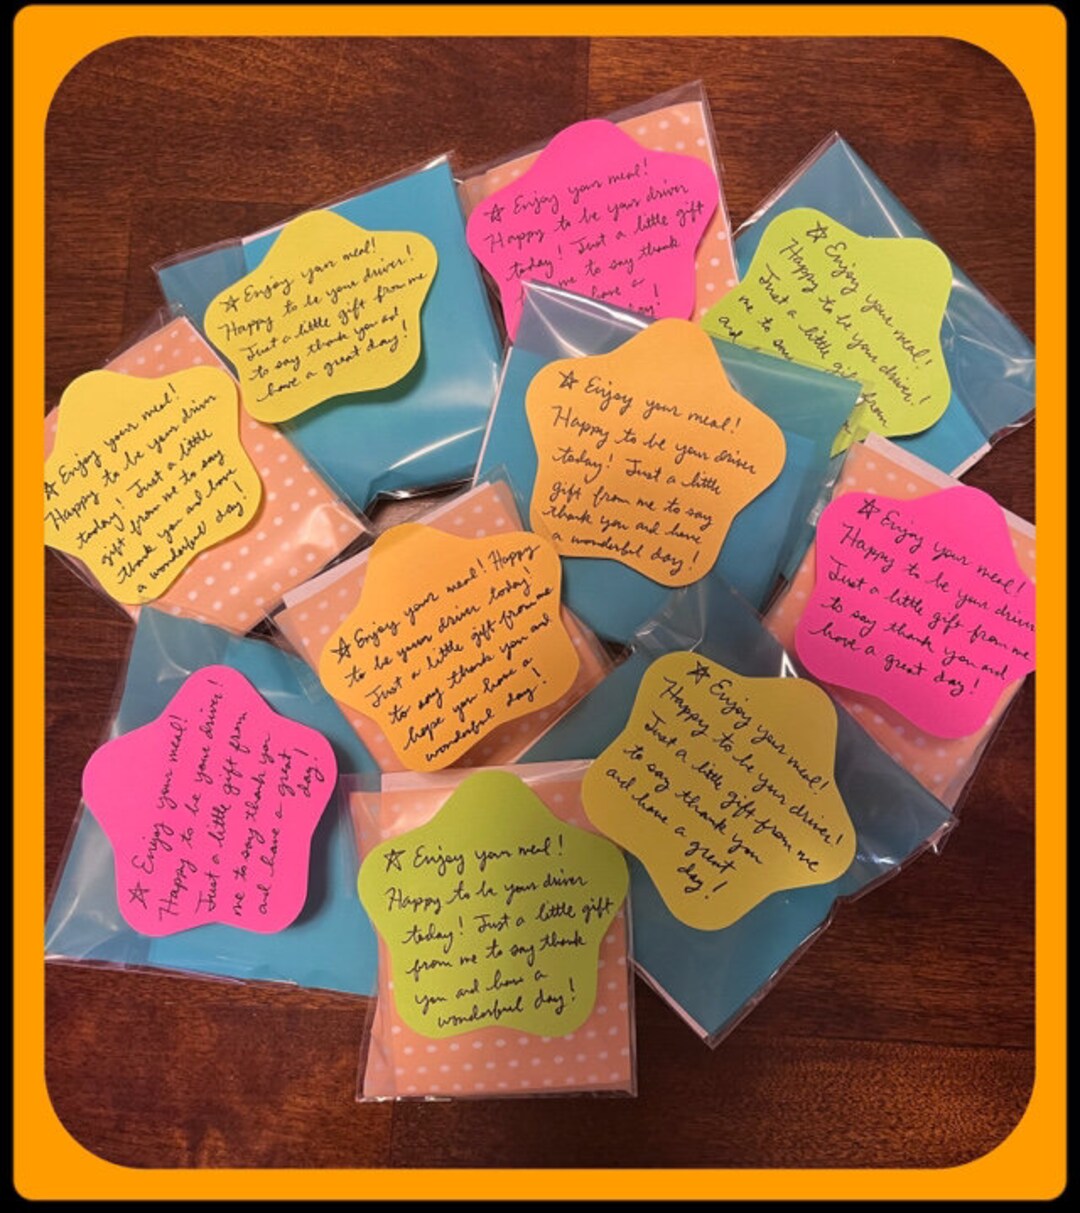 ☆ Enjoy your meal!
Happy to be your driver
today! Just a little gift
me to say thank
have a
day!
☆ Enjoy your meal!
Happy to be your driver!
Just a little gift from me
to say thank you and
have a great day!
☆ Enjoy your meal!
Happy to be your driver!
Just a little gift from
me to
and
☆ Enjoy your meal!
Happy to be your driver
today! Just a little
gift from me to say
thank you and have
a wonderful day!
☆ Enjoy your meal!
Happy to be your driver
today! Just a little
gift from me to say
thank you and have
a wonderful day!
☆ Enjoy your meal! Happy
to be your driver today!
Just a little gift from me
to say thank you and
hope you have a
wonderful day!
☆ Enjoy your meal!
Happy to be your driver
Just a little gift from me
to say thank you and
have a great day!
☆ Enjoy your meal!
Happy to be your driver!
Just a little gift from
me to say thank you
and have a great
day!
☆ Enjoy your meal!
Happy to be your driver!
Just a little gift from me
to say thank you
and have a great
day!
☆ Enjoy your meal!
Happy to be your driver
today! Just a little gift
from me to say thank
you and have a
wonderful day!